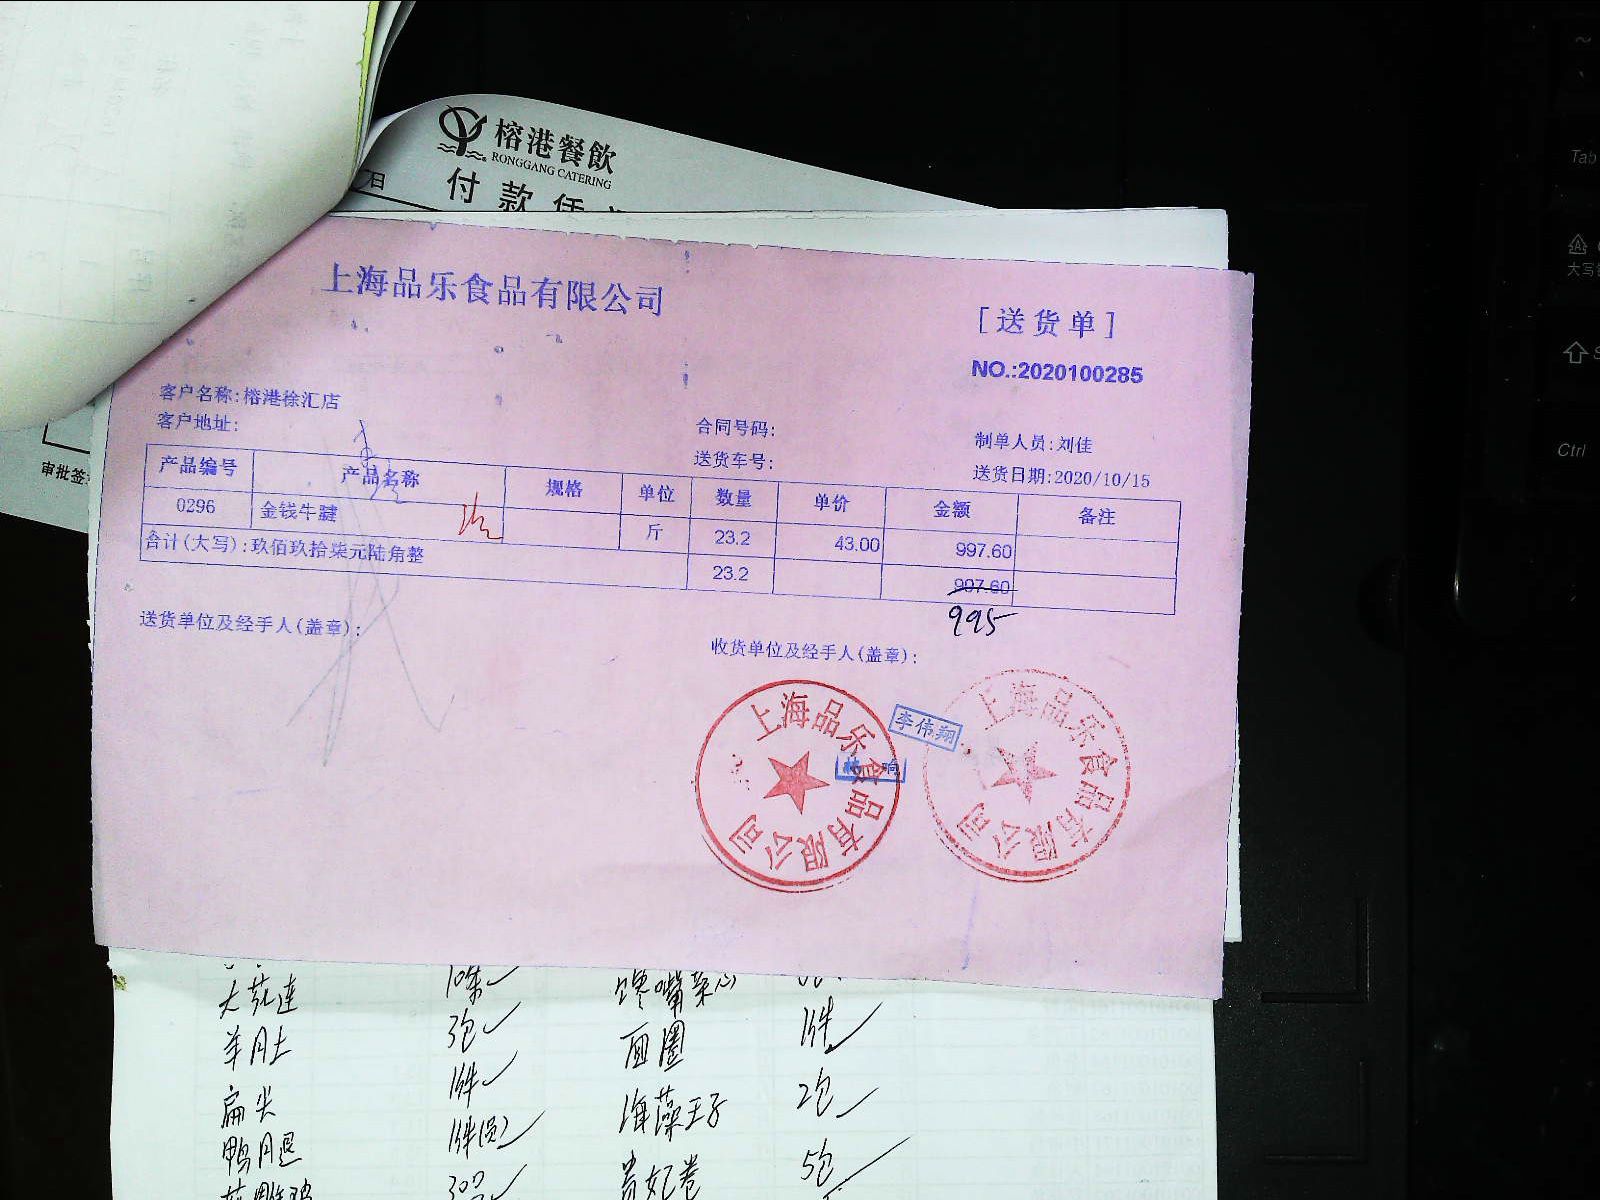 榕港餐飲
RONGGANG CATERING
日
付款凭
上海品乐食品有限公司
[送货单]
NO.:2020100285
客户名称:榕港徐汇店
客户地址:
合同号码:
制单人员:刘佳
送货车号:
送货日期:2020/10/15
审批签
产品编号 产品名称 规格 单位 数量 单价 金额 备注
0296 金钱牛腱 斤 23.2 43.00 997.60
合计(大写):玖佰玖拾柒元陆角整 23.2 997.60
995
送货单位及经手人(盖章):
收货单位及经手人(盖章):
上海品乐食品有限公司
李伟翔
上海品乐食品有限公司
大花连 10条 馋嘴菜心
羊肚 3包 面圈 1件
扁尖 1件 海藻王子 2包
鸭腿 1件 贵妃卷 5包
Tab
大写
Ctrl